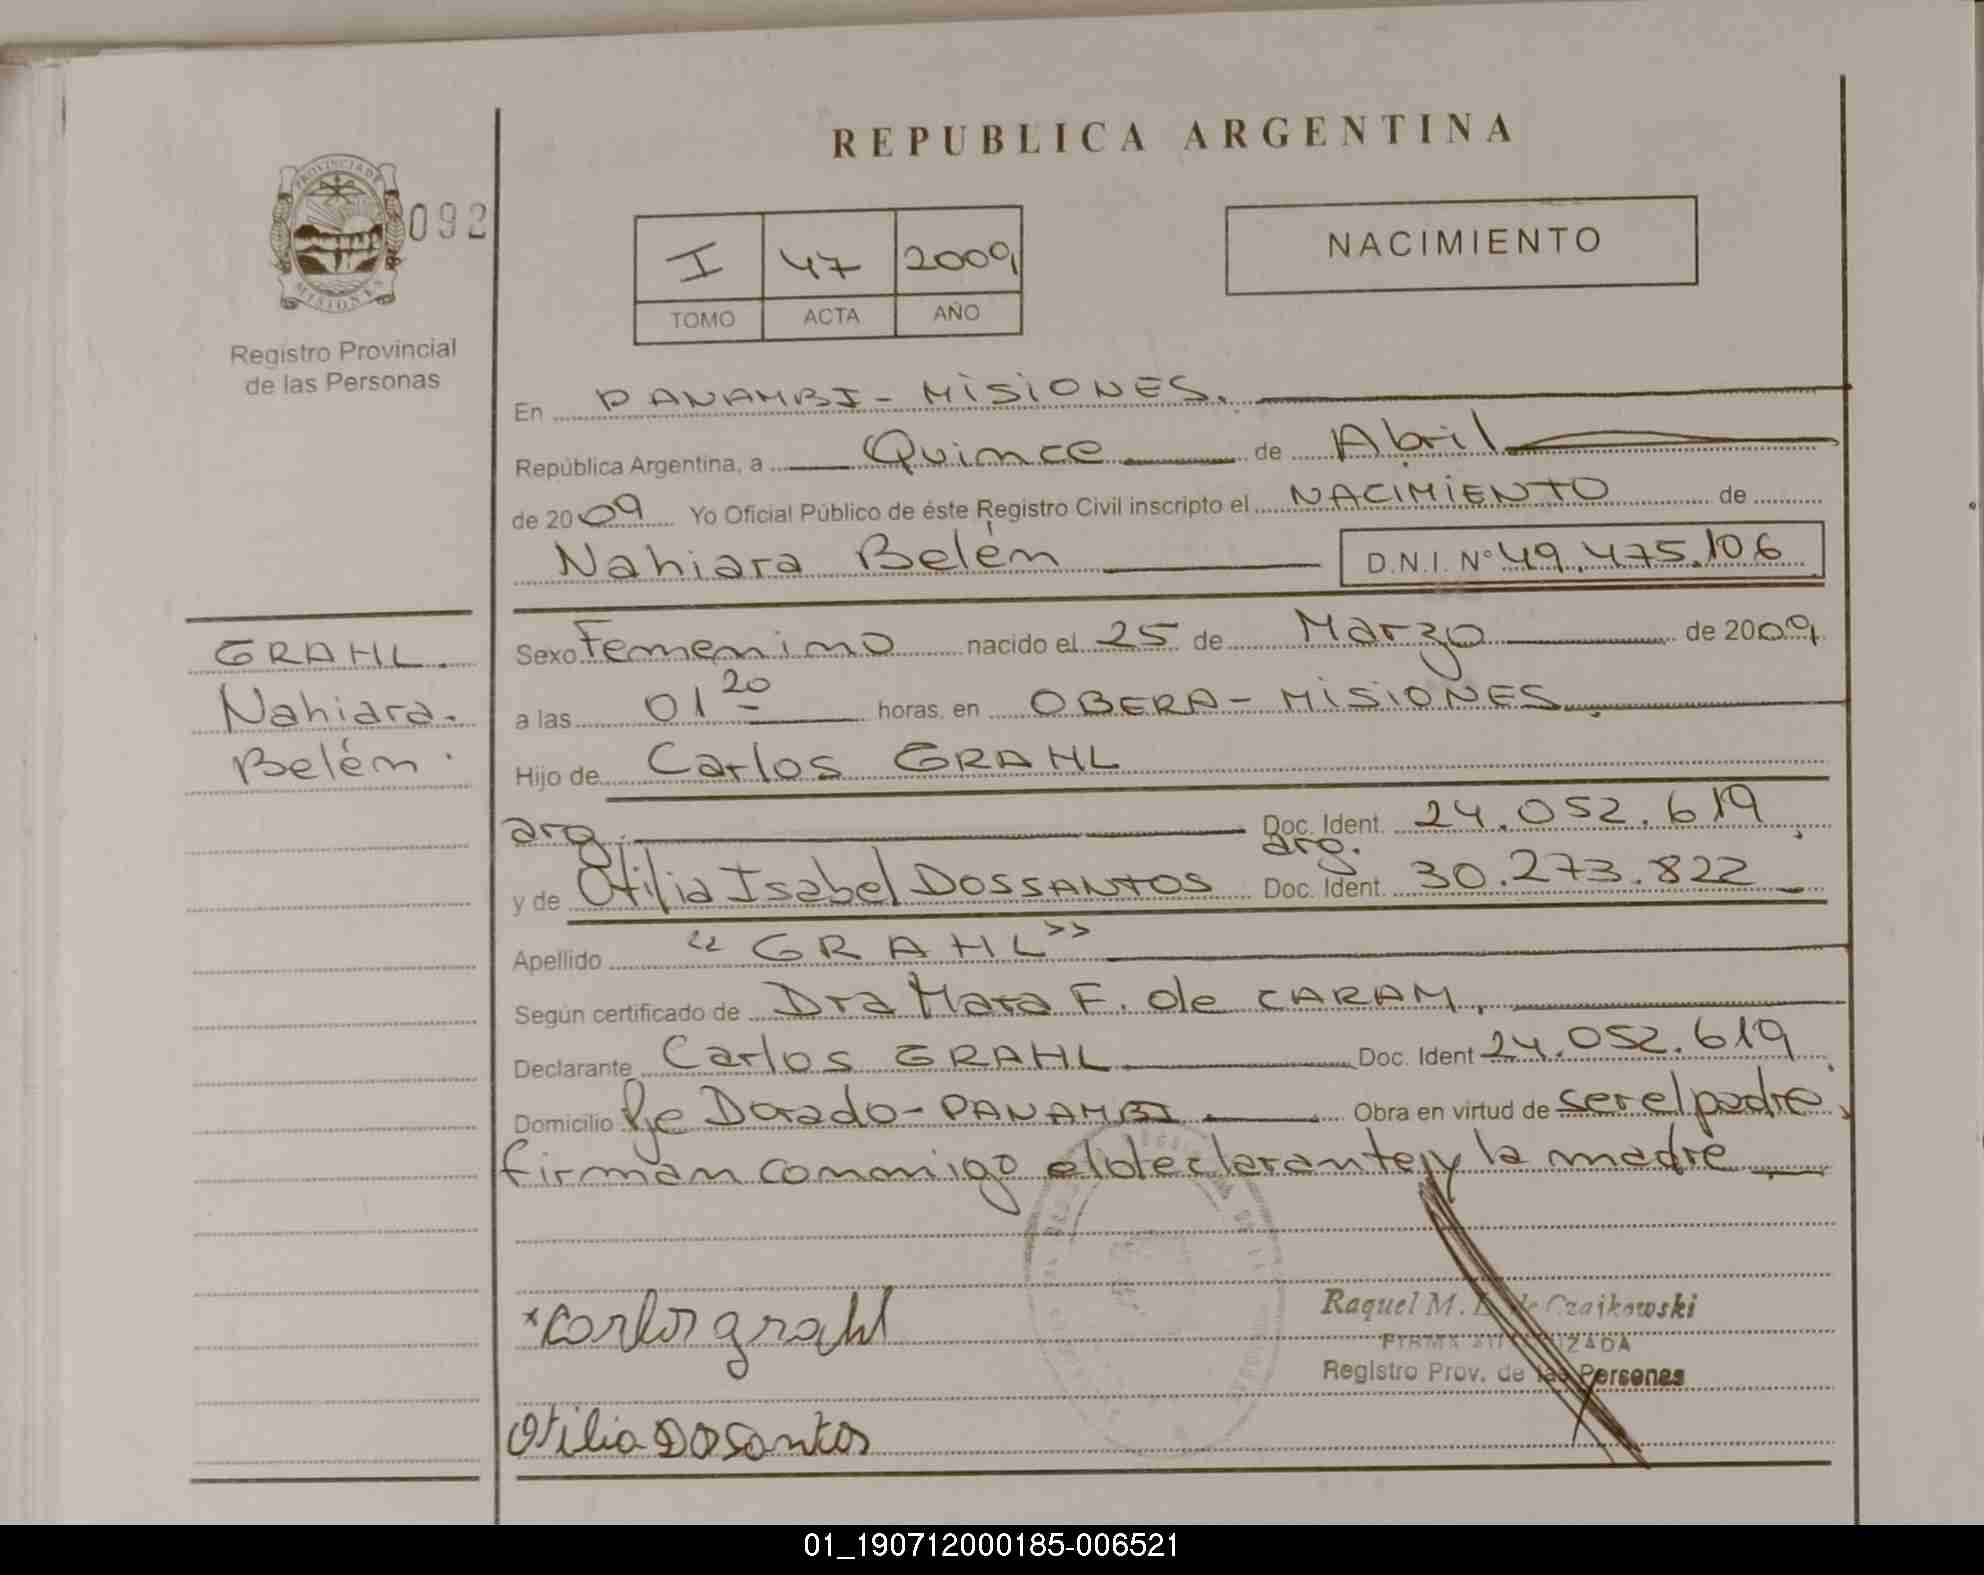 REPUBLICA ARGENTINA
PROVINCIA DE
MISIONES
092
Registro Provincial
de las Personas
I 47 2009
TOMO ACTA AÑO
NACIMIENTO
En PANAMBI - MISIONES.
República Argentina, a Quince de Abril
de 2009 Yo Oficial Público de éste Registro Civil inscripto el NACIMIENTO de
Nahiara Belén D.N.I. Nº 49.475.106
GRAHL.
Nahiara.
Belén.
Sexo Femenino nacido el 25 de Marzo de 2009
a las 01 20 horas, en OBERA - MISIONES
Hijo de Carlos GRAHL
arg. Doc. Ident. 24.052.619
arg.
y de Otilia Isabel DOSSANTOS Doc. Ident. 30.273.822
Apellido "GRAHL"
Según certificado de Dra Mara F. de CARAM.
Declarante Carlos GRAHL Doc. Ident 24.052.619
Domicilio Pje Dorado - PANAMBI Obra en virtud de ser el padre,
firman conmigo el declarante y la madre
Raquel M. de Czajkowski
FIRMA AUTORIZADA
Registro Prov. de las Personas
x Carlos grahl
Otilia DOSantos
01_190712000185-006521